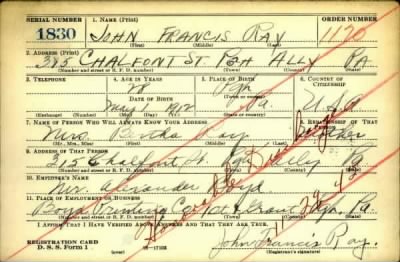 SERIAL NUMBER
1. NAME (Print)
ORDER NUMBER
1830
JOHN FRANCIS RAY
1120
(First) (Middle) (Last)
2. ADDRESS (Print)
315 CHALFONT ST. PGH ALLY PA
(Number and street or R. F. D. number) (Town) (County) (State)
3. TELEPHONE
4. AGE IN YEARS
5. PLACE OF BIRTH
6. COUNTRY OF CITIZENSHIP
28
Pgh
DATE OF BIRTH
(Town or county)
May 1 1912
Pa.
U.S.A.
(Exchange) (Number)
(Mo.) (Day) (Yr.)
(State or country)
7. NAME OF PERSON WHO WILL ALWAYS KNOW YOUR ADDRESS
8. RELATIONSHIP OF THAT PERSON
Mrs. Bertha Ray
Mother
(Mr., Mrs., Miss) (First) (Middle) (Last)
9. ADDRESS OF THAT PERSON
315 Chalfont St. Pgh Alley Pa
(Number and street or R. F. D. number) (Town) (County) (State)
10. EMPLOYER'S NAME
Mr. Alexander Boyd
11. PLACE OF EMPLOYMENT OR BUSINESS
Boyd Printing Co. Grant Pgh. Pa.
(Number and street or R. F. D. number) (Town) (County) (State)
I AFFIRM THAT I HAVE VERIFIED ABOVE ANSWERS AND THAT THEY ARE TRUE.
REGISTRATION CARD
D. S. S. Form 1
John Francis Ray.
(Registrant's signature)